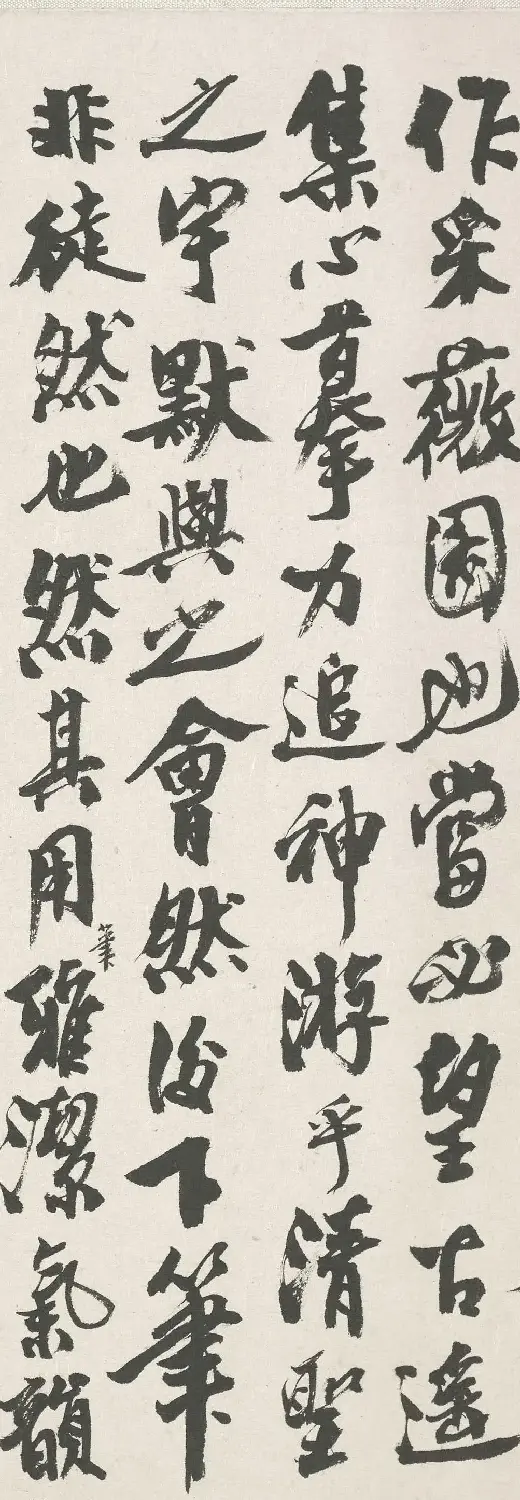 作采薇圖也當必望古遥
集心摹力追神游乎清聖
之宇默與之會然後下筆
非徒然也然其用筆雅潔氣韻